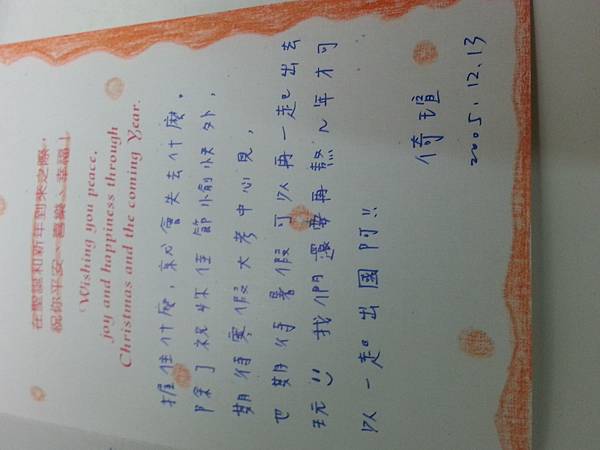 在聖誕和新年到來之際,
祝你平安、喜樂、幸福!
Wishing you peace,
joy and happiness through
Christmas and the coming Year.
握住什麼,就會失去什麼。
除了祝妳佳節愉快外,
期待寒假大考中心見,
也期待暑假可以再一起出去
玩 我們還要再熬几年才可
以一起出國阿!!
倚瑄
2005.12.13